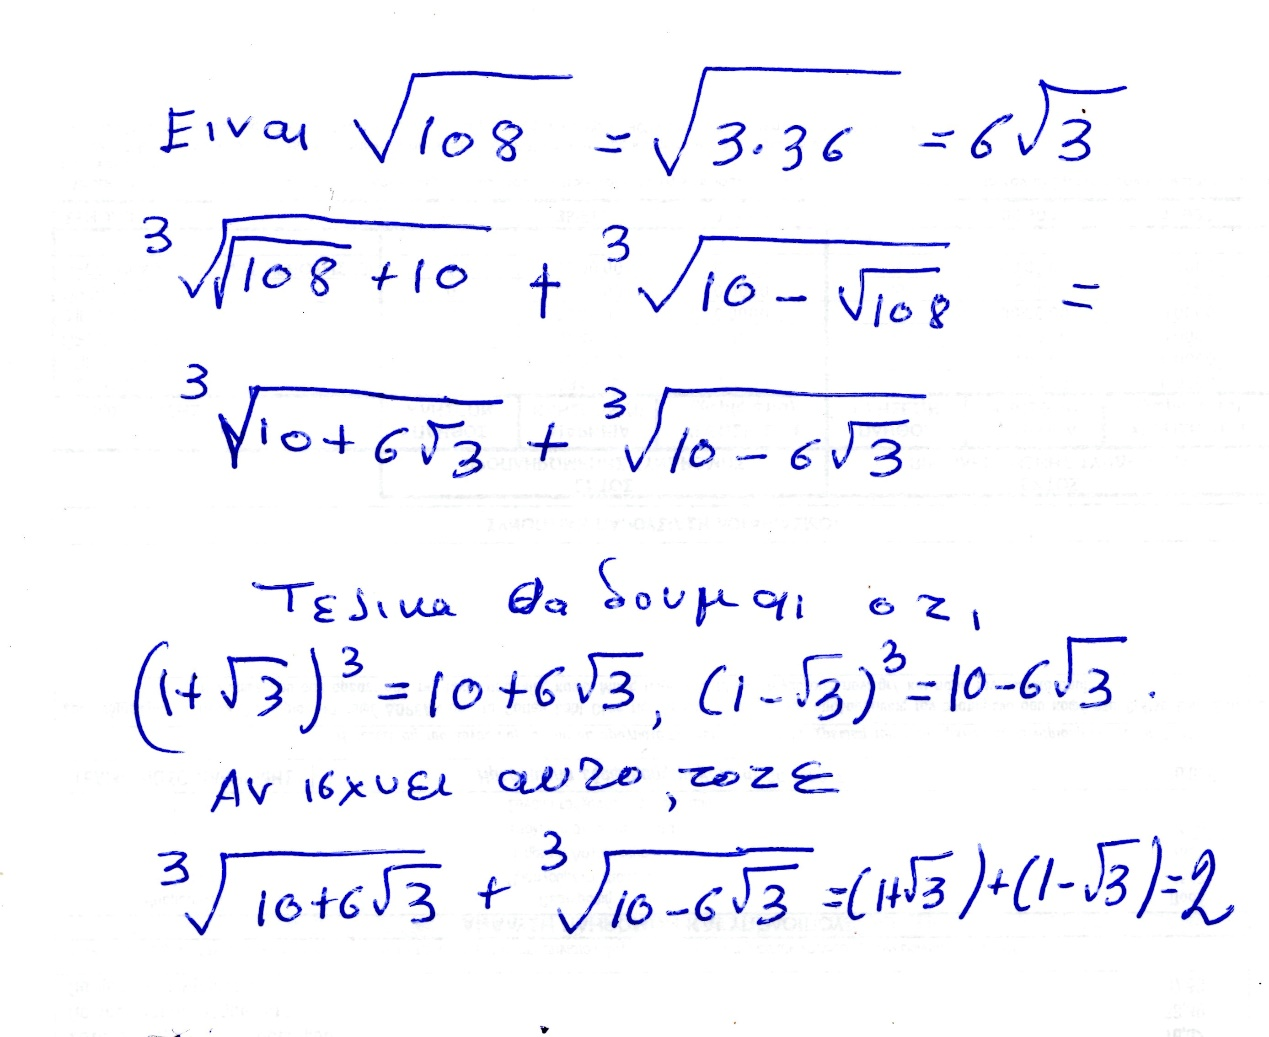 Ειναι √108 = √3·36 = 6√3
³√(√108 + 10) + ³√(10 - √108) =
³√(10 + 6√3) + ³√(10 - 6√3)
Τελικα θα δουμαι οτι
(1+√3)³ = 10+6√3, (1-√3)³ = 10-6√3.
Αν ισχυει αυτο, τοτε
³√(10+6√3) + ³√(10-6√3) = (1+√3)+(1-√3) = 2